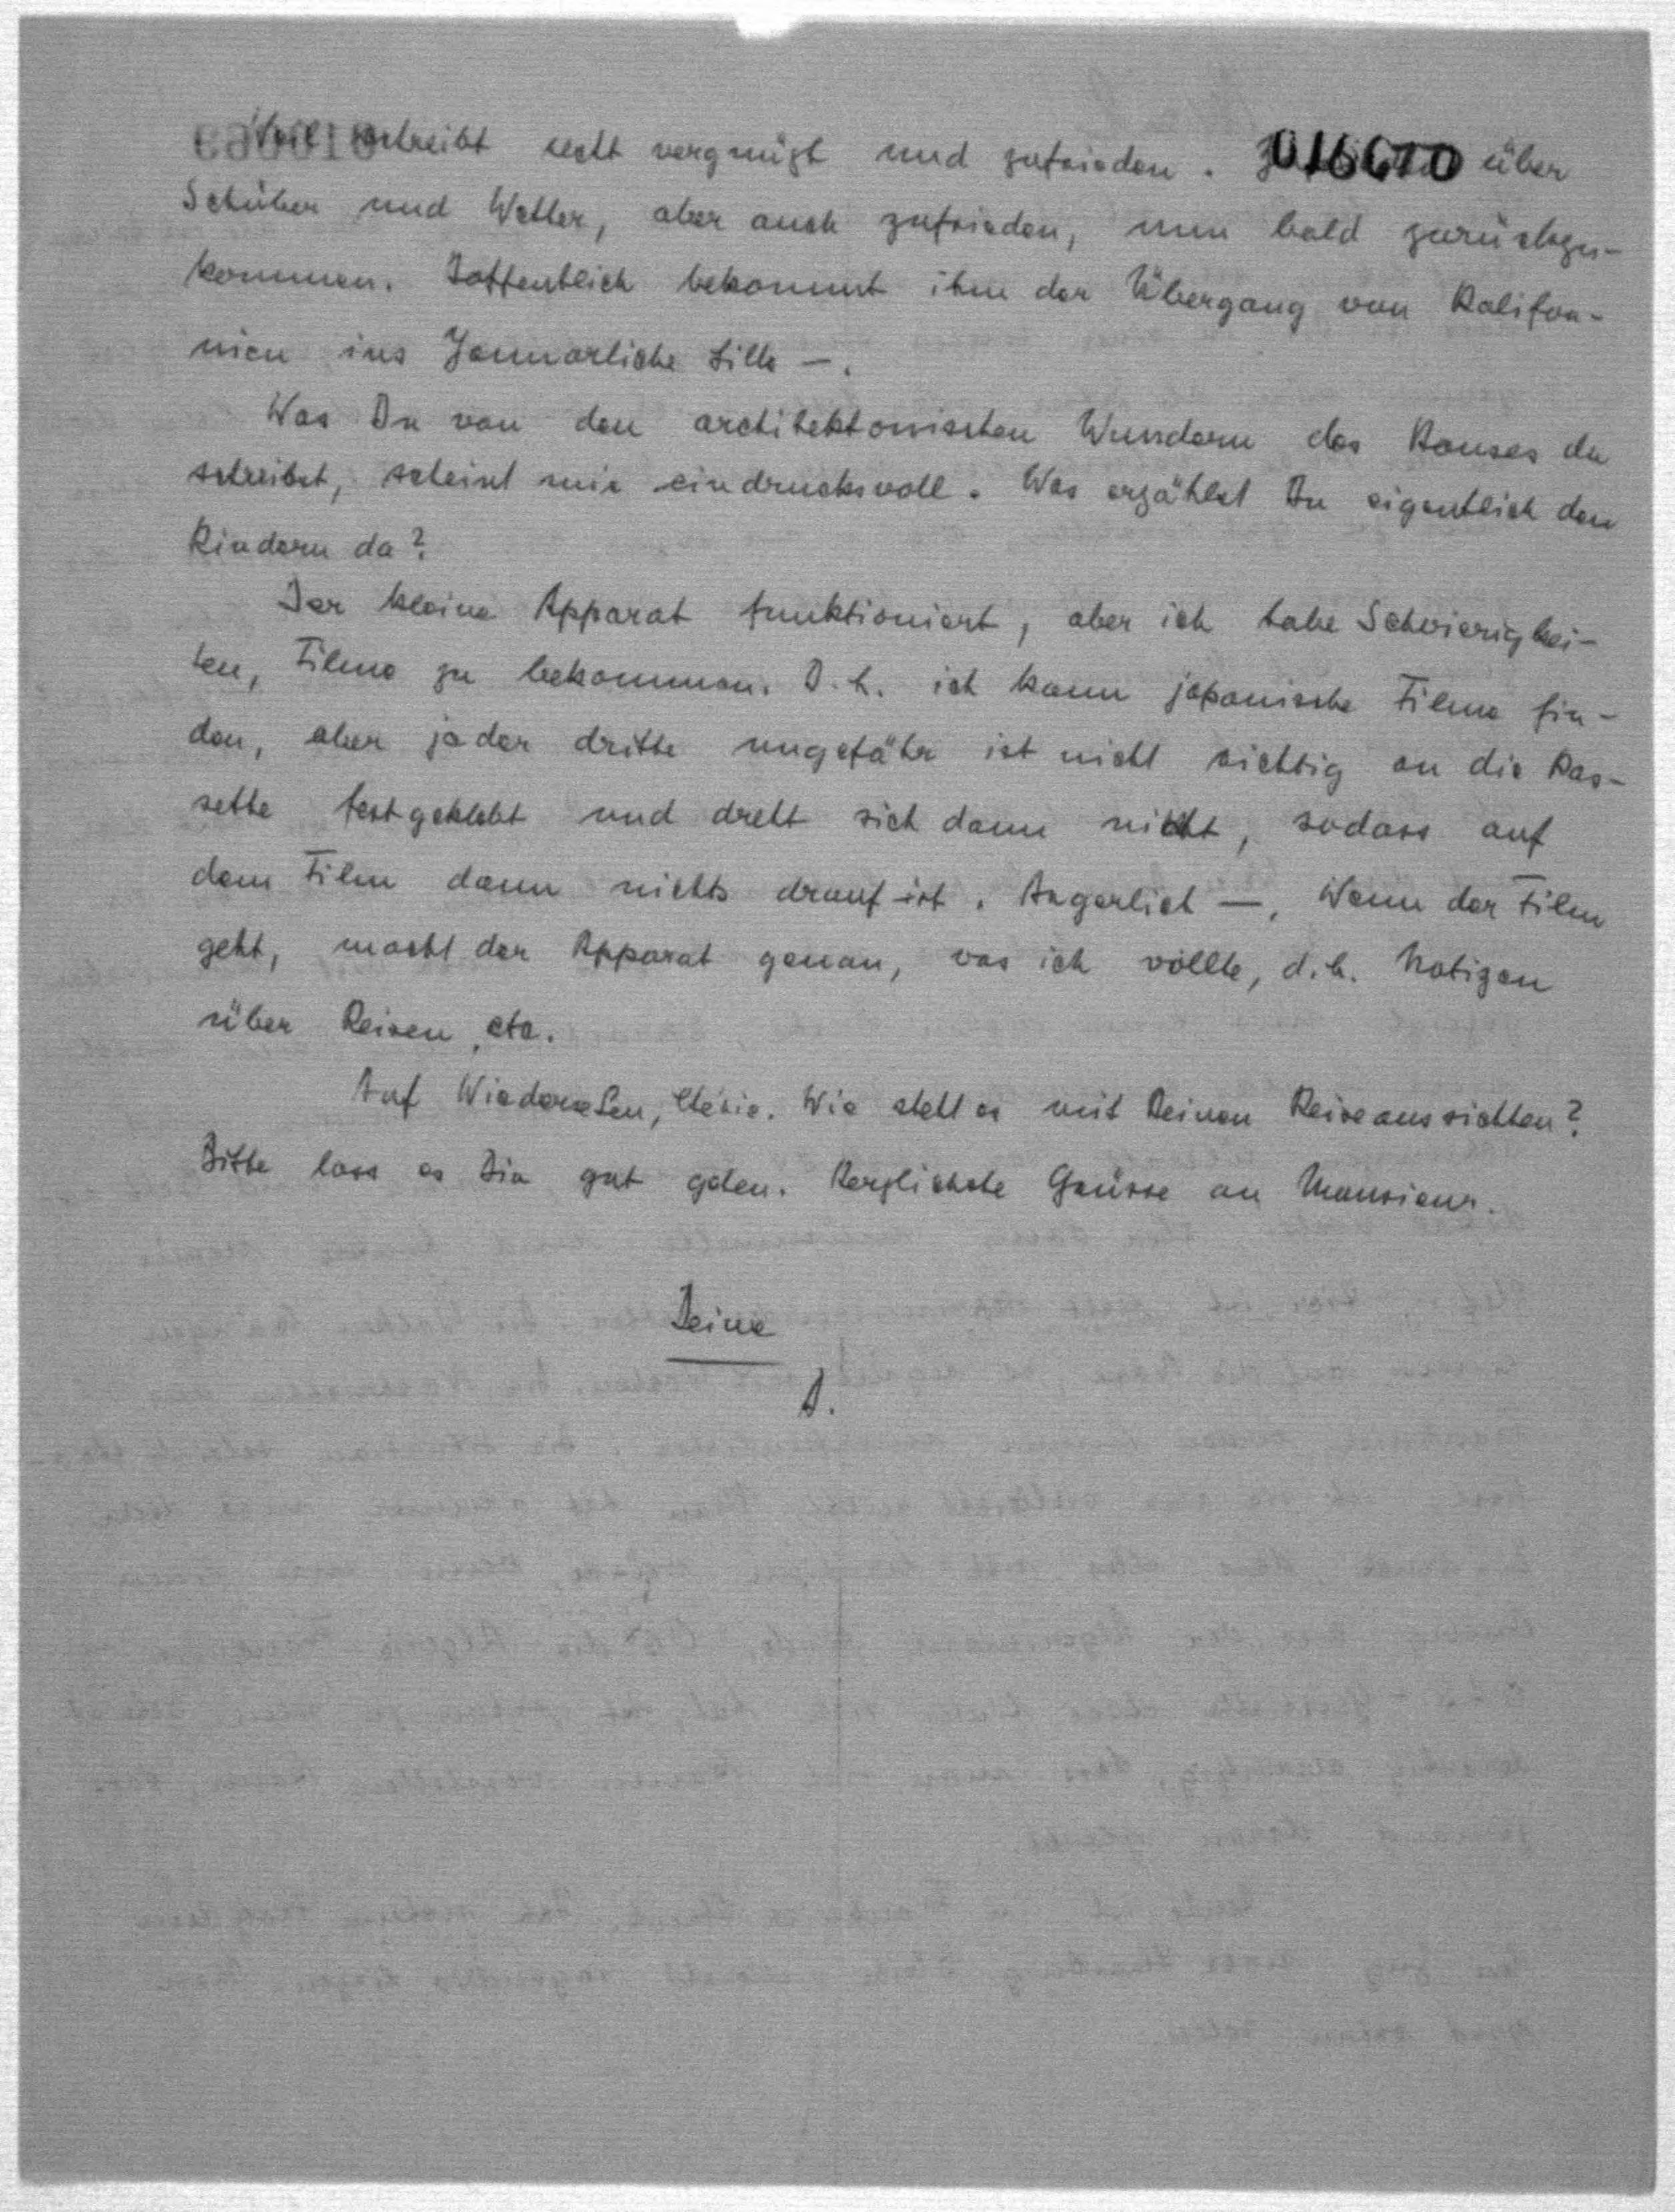 schreibt recht vergnügt und zufrieden. 016610 über
Schüler und Wetter, aber auch zufrieden, nun bald zurückzu-
kommen. Hoffentlich bekommt ihm der Übergang von Kalifor-
nien ins Januarliche Lille —.
Was Du von den architektonischen Wundern des Hauses da
schreibst, scheint mir eindrucksvoll. Was erzählst Du eigentlich den
Kindern da?
Der kleine Apparat funktioniert, aber ich habe Schwierigkei-
ten, Filme zu bekommen. D.h. ich kann japanische Filme fin-
den, aber jeder dritte ungefähr ist nicht richtig an die Kas-
sette festgeklebt und dreht sich dann nicht, sodass auf
dem Film dann nichts drauf ist. Ärgerlich —. Wenn der Film
geht, macht der Apparat genau, was ich wollte, d.h. Notizen
über Reisen, etc.
Auf Wiedersehen, Chérie. Wie steht es mit Deinen Reiseaussichten?
Bitte lass es Dir gut gehen. Herzlichste Grüsse an Monsieur.
Deine